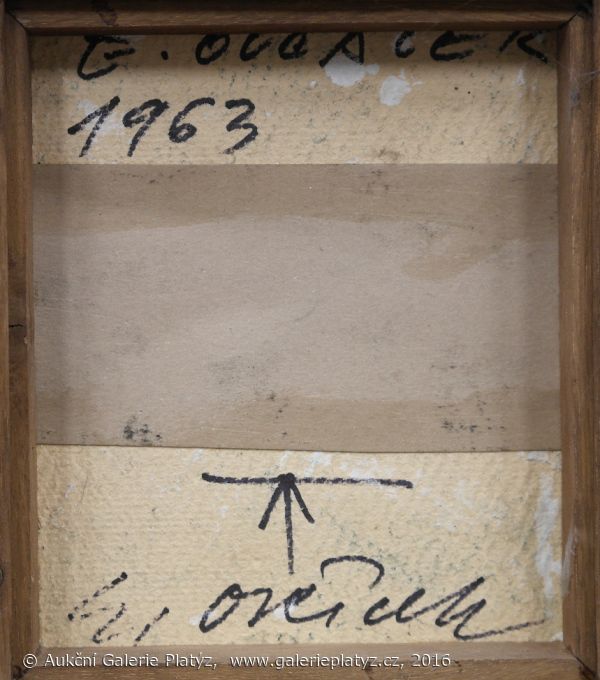 E. OVČÁČEK
1963
Ovčáček
© Aukční Galerie Platýz, www.galerieplatyz.cz, 2016